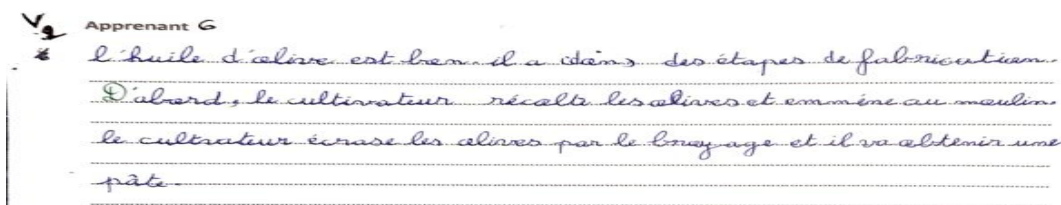 V2 Apprenant G
l'huile d'olive est bon. il a dans des étapes de fabrication.
D'abord, le cultivateur récolte les olives et emmène au moulin
le cultrateur écrase les olives par le broyage et il va obtenir une
pâte.